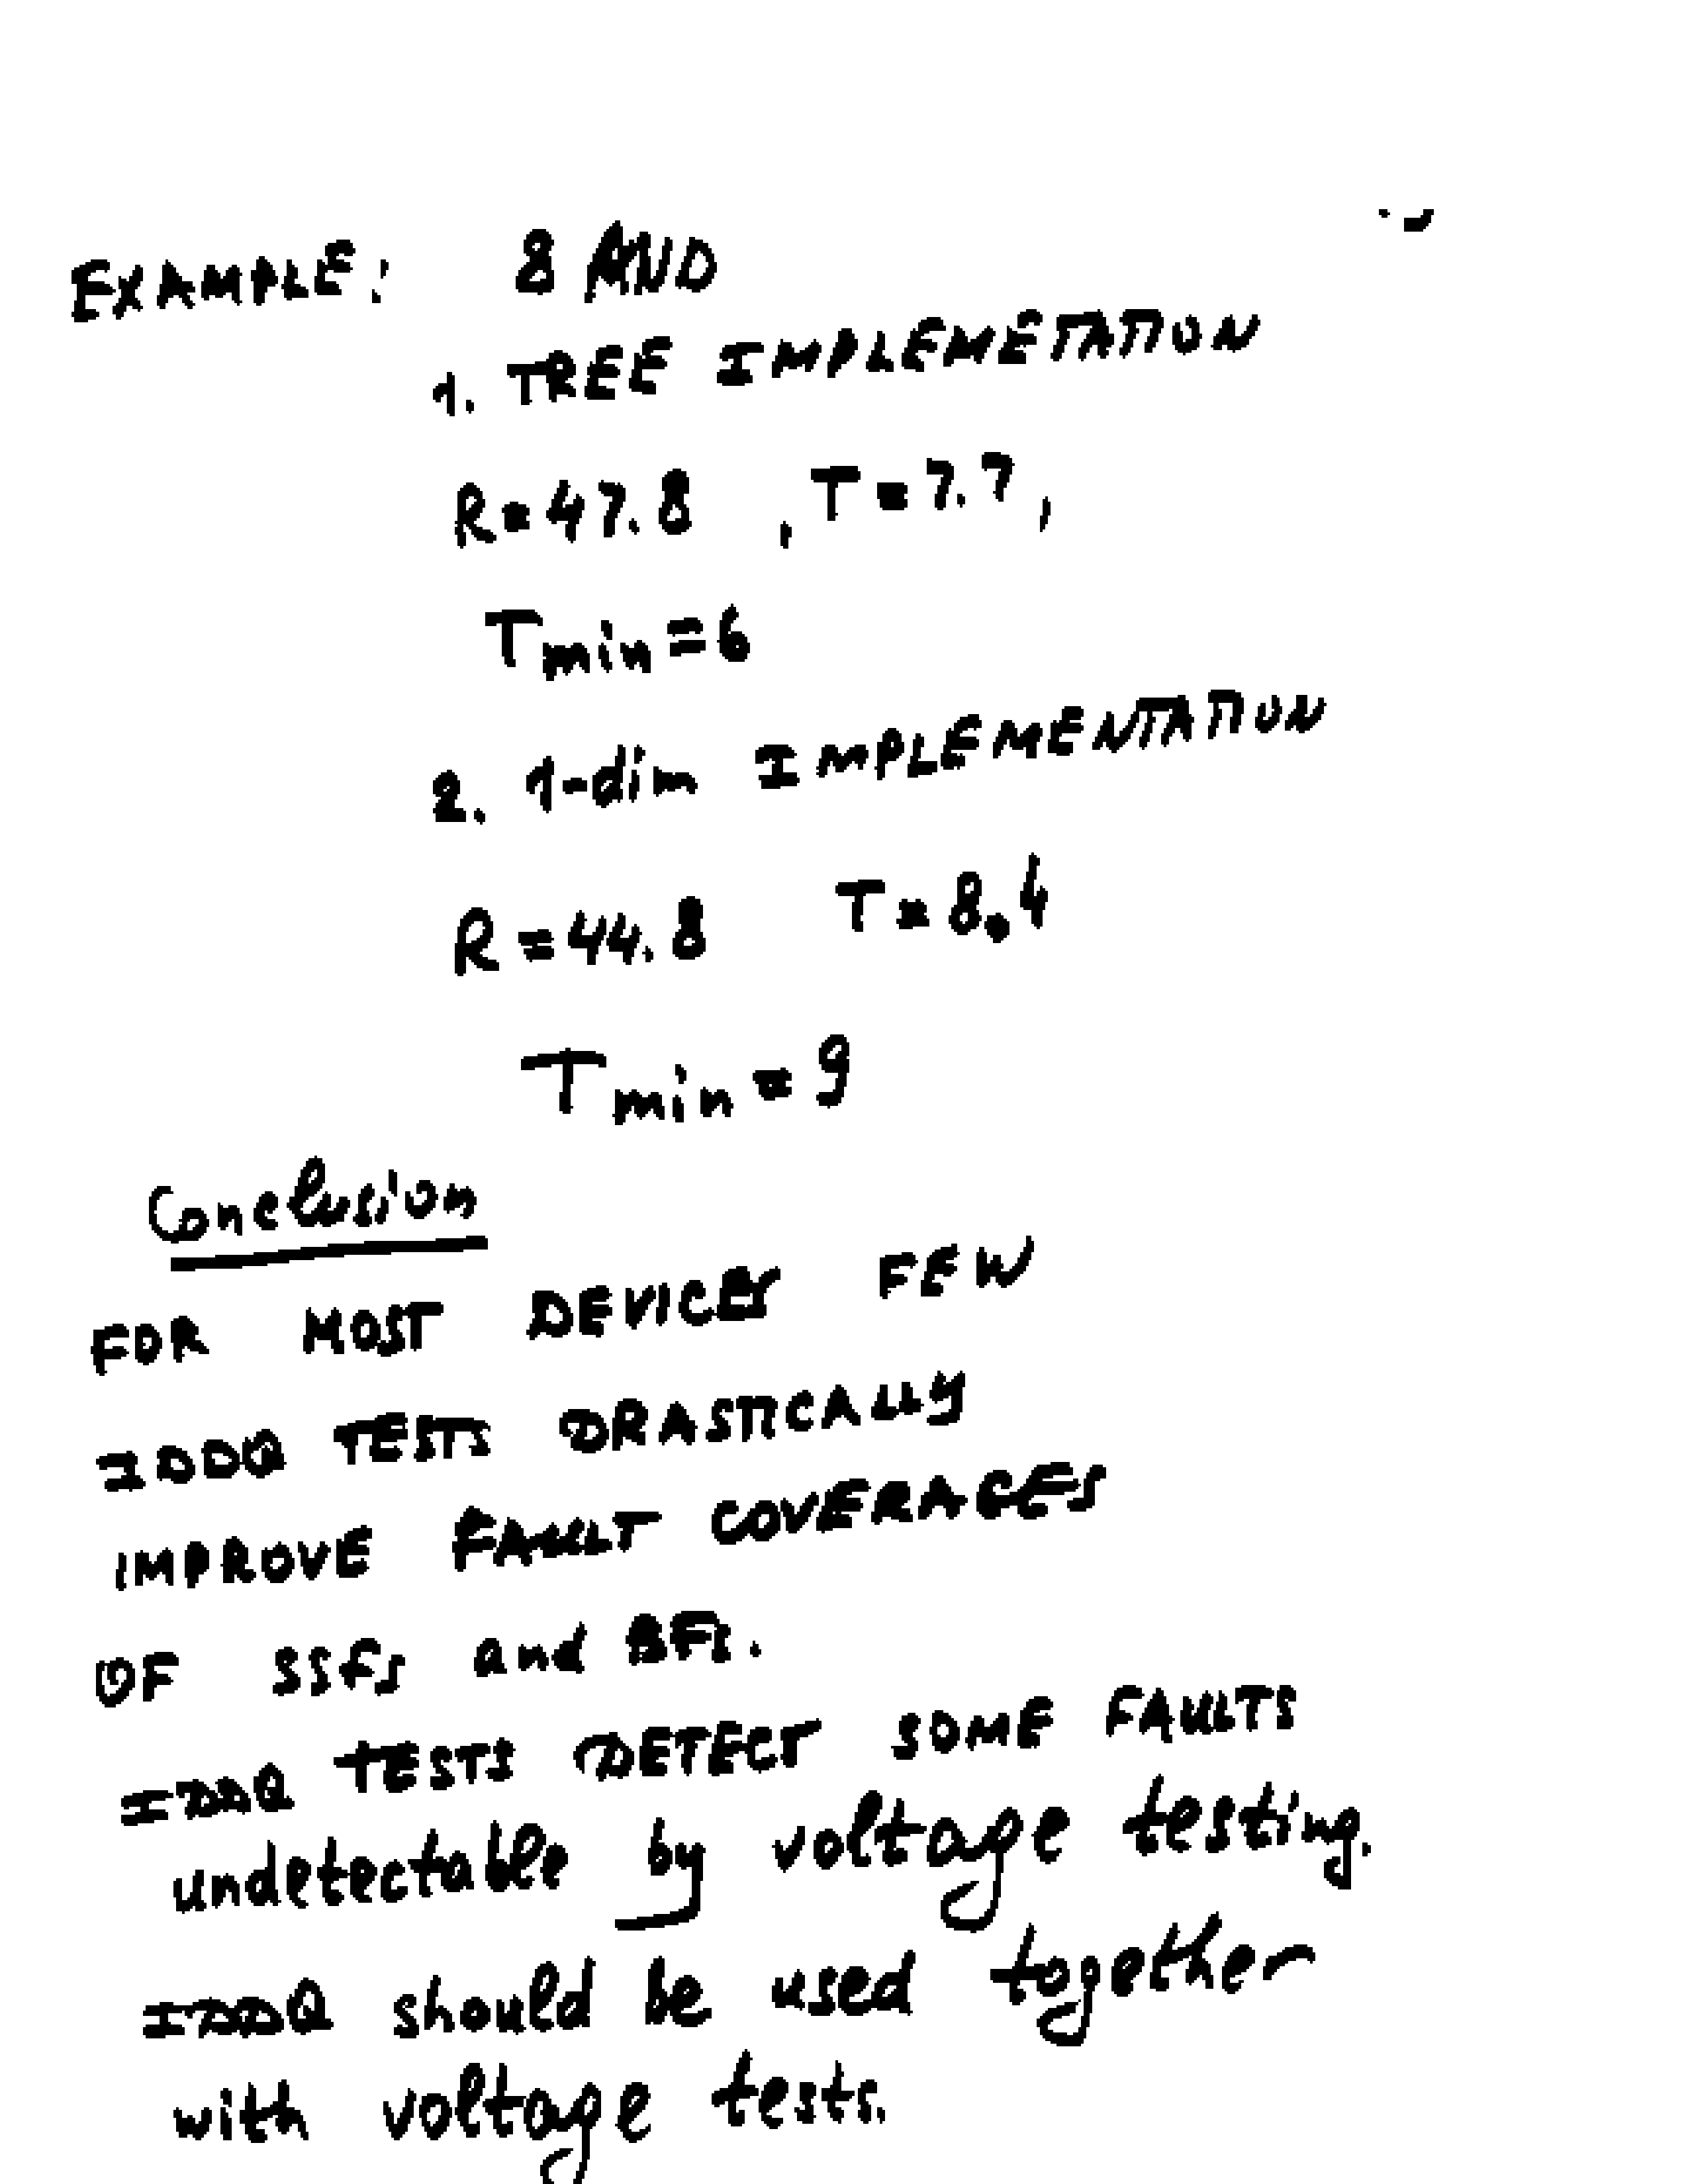 EXAMPLE: 8 AND
1. TREE IMPLEMETATION
R=47.8 , T=7.7,
Tmin=6
2. 1-dim IMPLEMENTATION
R=44.8 T=8.4
Tmin=9
Conclusion
FOR MOST DEVICES FEW
IDDQ TESTS DRASTICALLY
IMPROVE FAULT COVERAGES
OF SSFs and BFs.
IDDQ TESTS DETECT SOME FAULTS
undetectable by voltage testing.
IDDQ should be used together
with voltage tests.